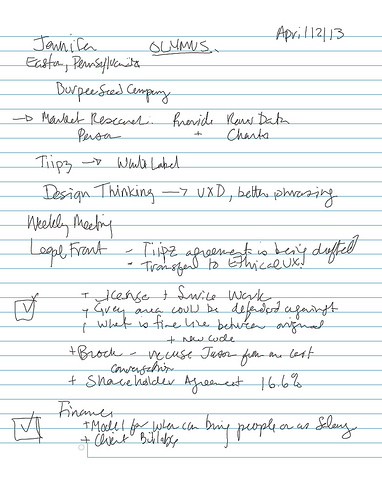 April 12/13
Jennifer OLYMUS.
Easton, Pennsylvania
Burpee Seed Company
→ Market Research. Provide Raw Data
Person + Charts
Tiipz → White Label
Design Thinking → UXD, better phrasing
Weekly Meeting
Legal Front - Tiipz agreement is being drafted?
- Transfer to Ethical UX.
+ License + Service Work
Grey area could be defended against
what is fine line between original
+ new code
+ Brock - recuse Jason from one cost
conversation
+ Shareholder Agreement 16.6%
Finances
+ Model for when can bring people on as Salary
+ Client Billable